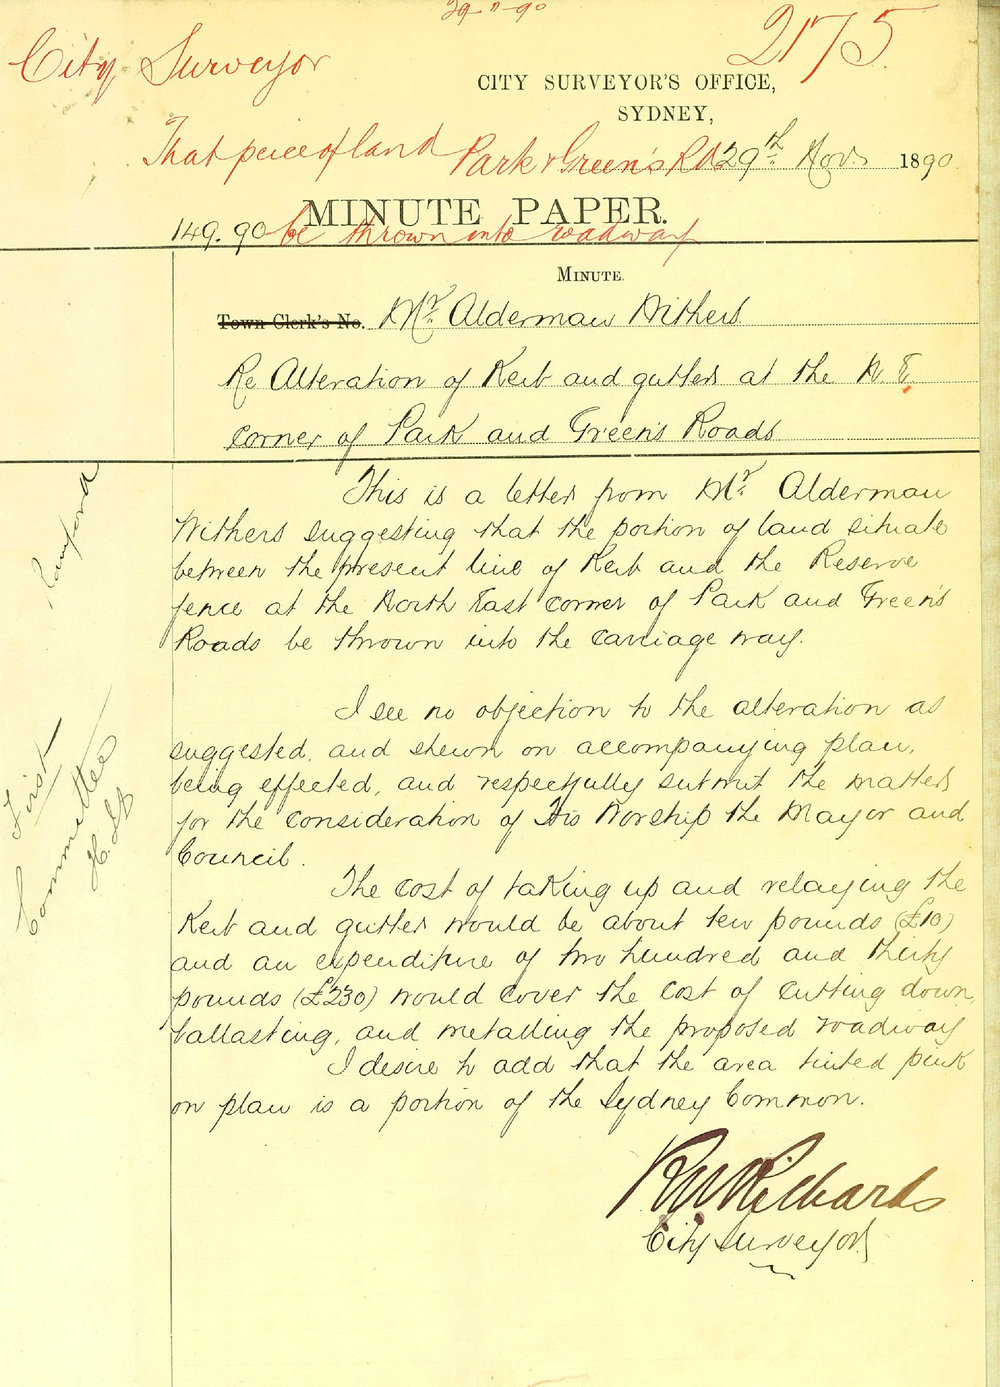 29-11-90
2175.
City Surveyor
CITY SURVEYOR'S OFFICE,
SYDNEY,
That peice of land Park & Green's Rd 29th Novr 1890
MINUTE PAPER.
149.90 be thrown into roadway
MINUTE.
Town Clerk's No. Mr. Alderman Withers
Re Alteration of Kerb and gutters at the N E.
corner of Park and Green's Roads
This is a letter from Mr. Alderman
Withers suggesting that the portion of land situate
between the present line of Kerb and the Reserve
fence at the North East corner of Park and Green's
Roads be thrown into the carriage way.
I see no objection to the alteration as
suggested, and shewn on accompanying plan,
being effected, and respectfully submit the matter
for the consideration of His Worship the Mayor and
Council.
The cost of taking up and relaying the
Kerb and gutter would be about ten pounds (£10)
and an expenditure of two hundred and thirty
pounds (£230) would cover the cost of cutting down,
ballasting, and metalling the proposed roadway
I desire to add that the area tinted pink
on plan is a portion of the Sydney Common.
RWRichards
City Surveyor
First
Committee